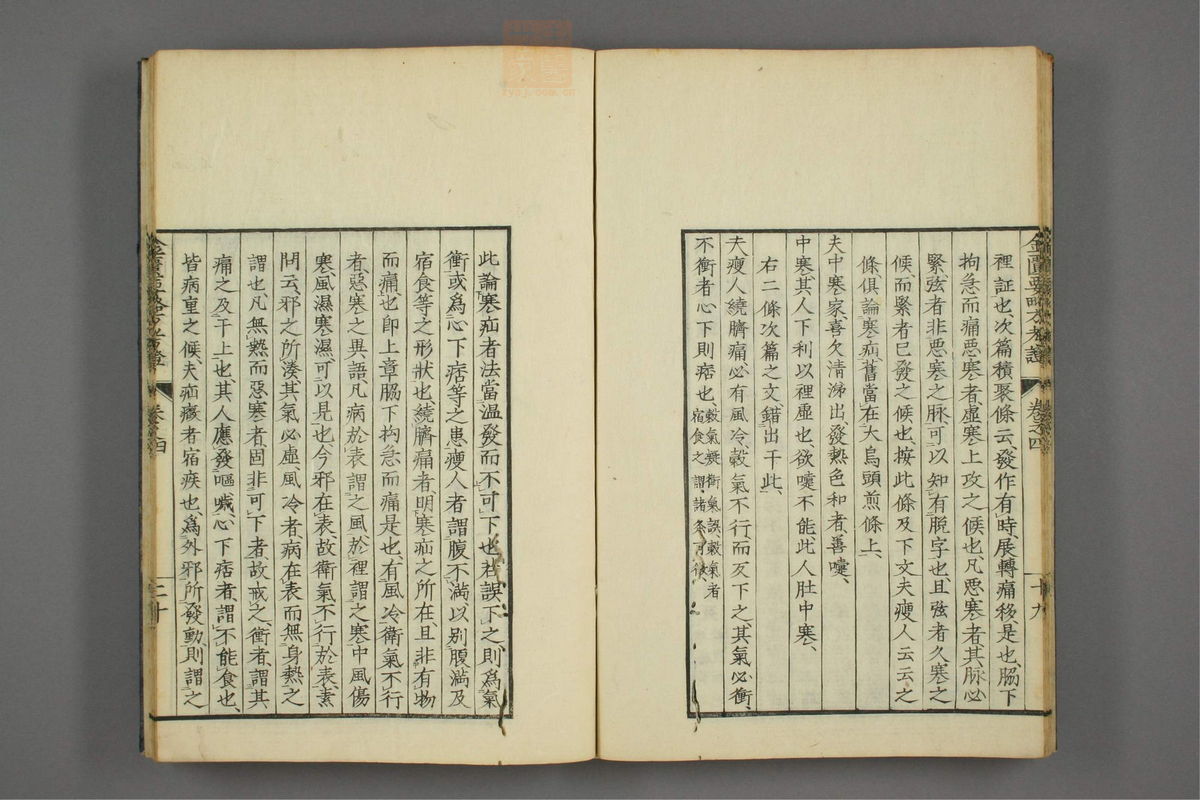 金匱要略方考證 卷之四 十九
裡証也、次篇積聚條云、發作有時、展轉痛移是也、脇下
拘急而痛惡寒者、虛寒上攻之候也、凡惡寒者、其脉必
緊、弦者非惡寒之脉、可以知有脫字也、且弦者久寒之
候、而緊者已發之候也、按此條及下文夫瘦人云云之
條、俱論寒疝、舊當在大烏頭煎條上、
夫中寒家、喜欠清涕出、發熱色和者、善嚏、
中寒、其人下利以裡虛也、欲嚏不能、此人肚中寒、
右二條次篇之文、錯出于此、
夫瘦人繞臍痛、必有風冷、穀氣不行、而反下之、其氣必衝、
不衝者、心下則痞也、
穀氣疑衛氣誤、穀氣者
宿食之謂、諸条可徵
此論寒疝者法當温發而不可下也、若誤下之、則爲氣
衝或爲心下痞等之患、瘦人者、謂腹不滿以别腹滿及
宿食等之形狀也、繞臍痛者、明寒疝之所在、且非有物
而痛也、卽上章脇下拘急而痛是也、有風冷衛氣不行
者、惡寒之異語、凡病於表謂之風、於裡謂之寒、中風傷
寒、風濕寒濕、可以見也、今邪在表、故衛氣不行於表、素
問云、邪之所湊、其氣必虛、風冷者、病在表而無身熱之
謂也、凡無熱而惡寒者、固非可下者、故戒之、衝者、謂其
痛之及于上也、其人應發嘔噦、心下痞者、謂不能食也、
皆病重之候、夫疝癥者宿疾也、爲外邪所發動、則謂之
金匱要略方考證 卷之四 二十